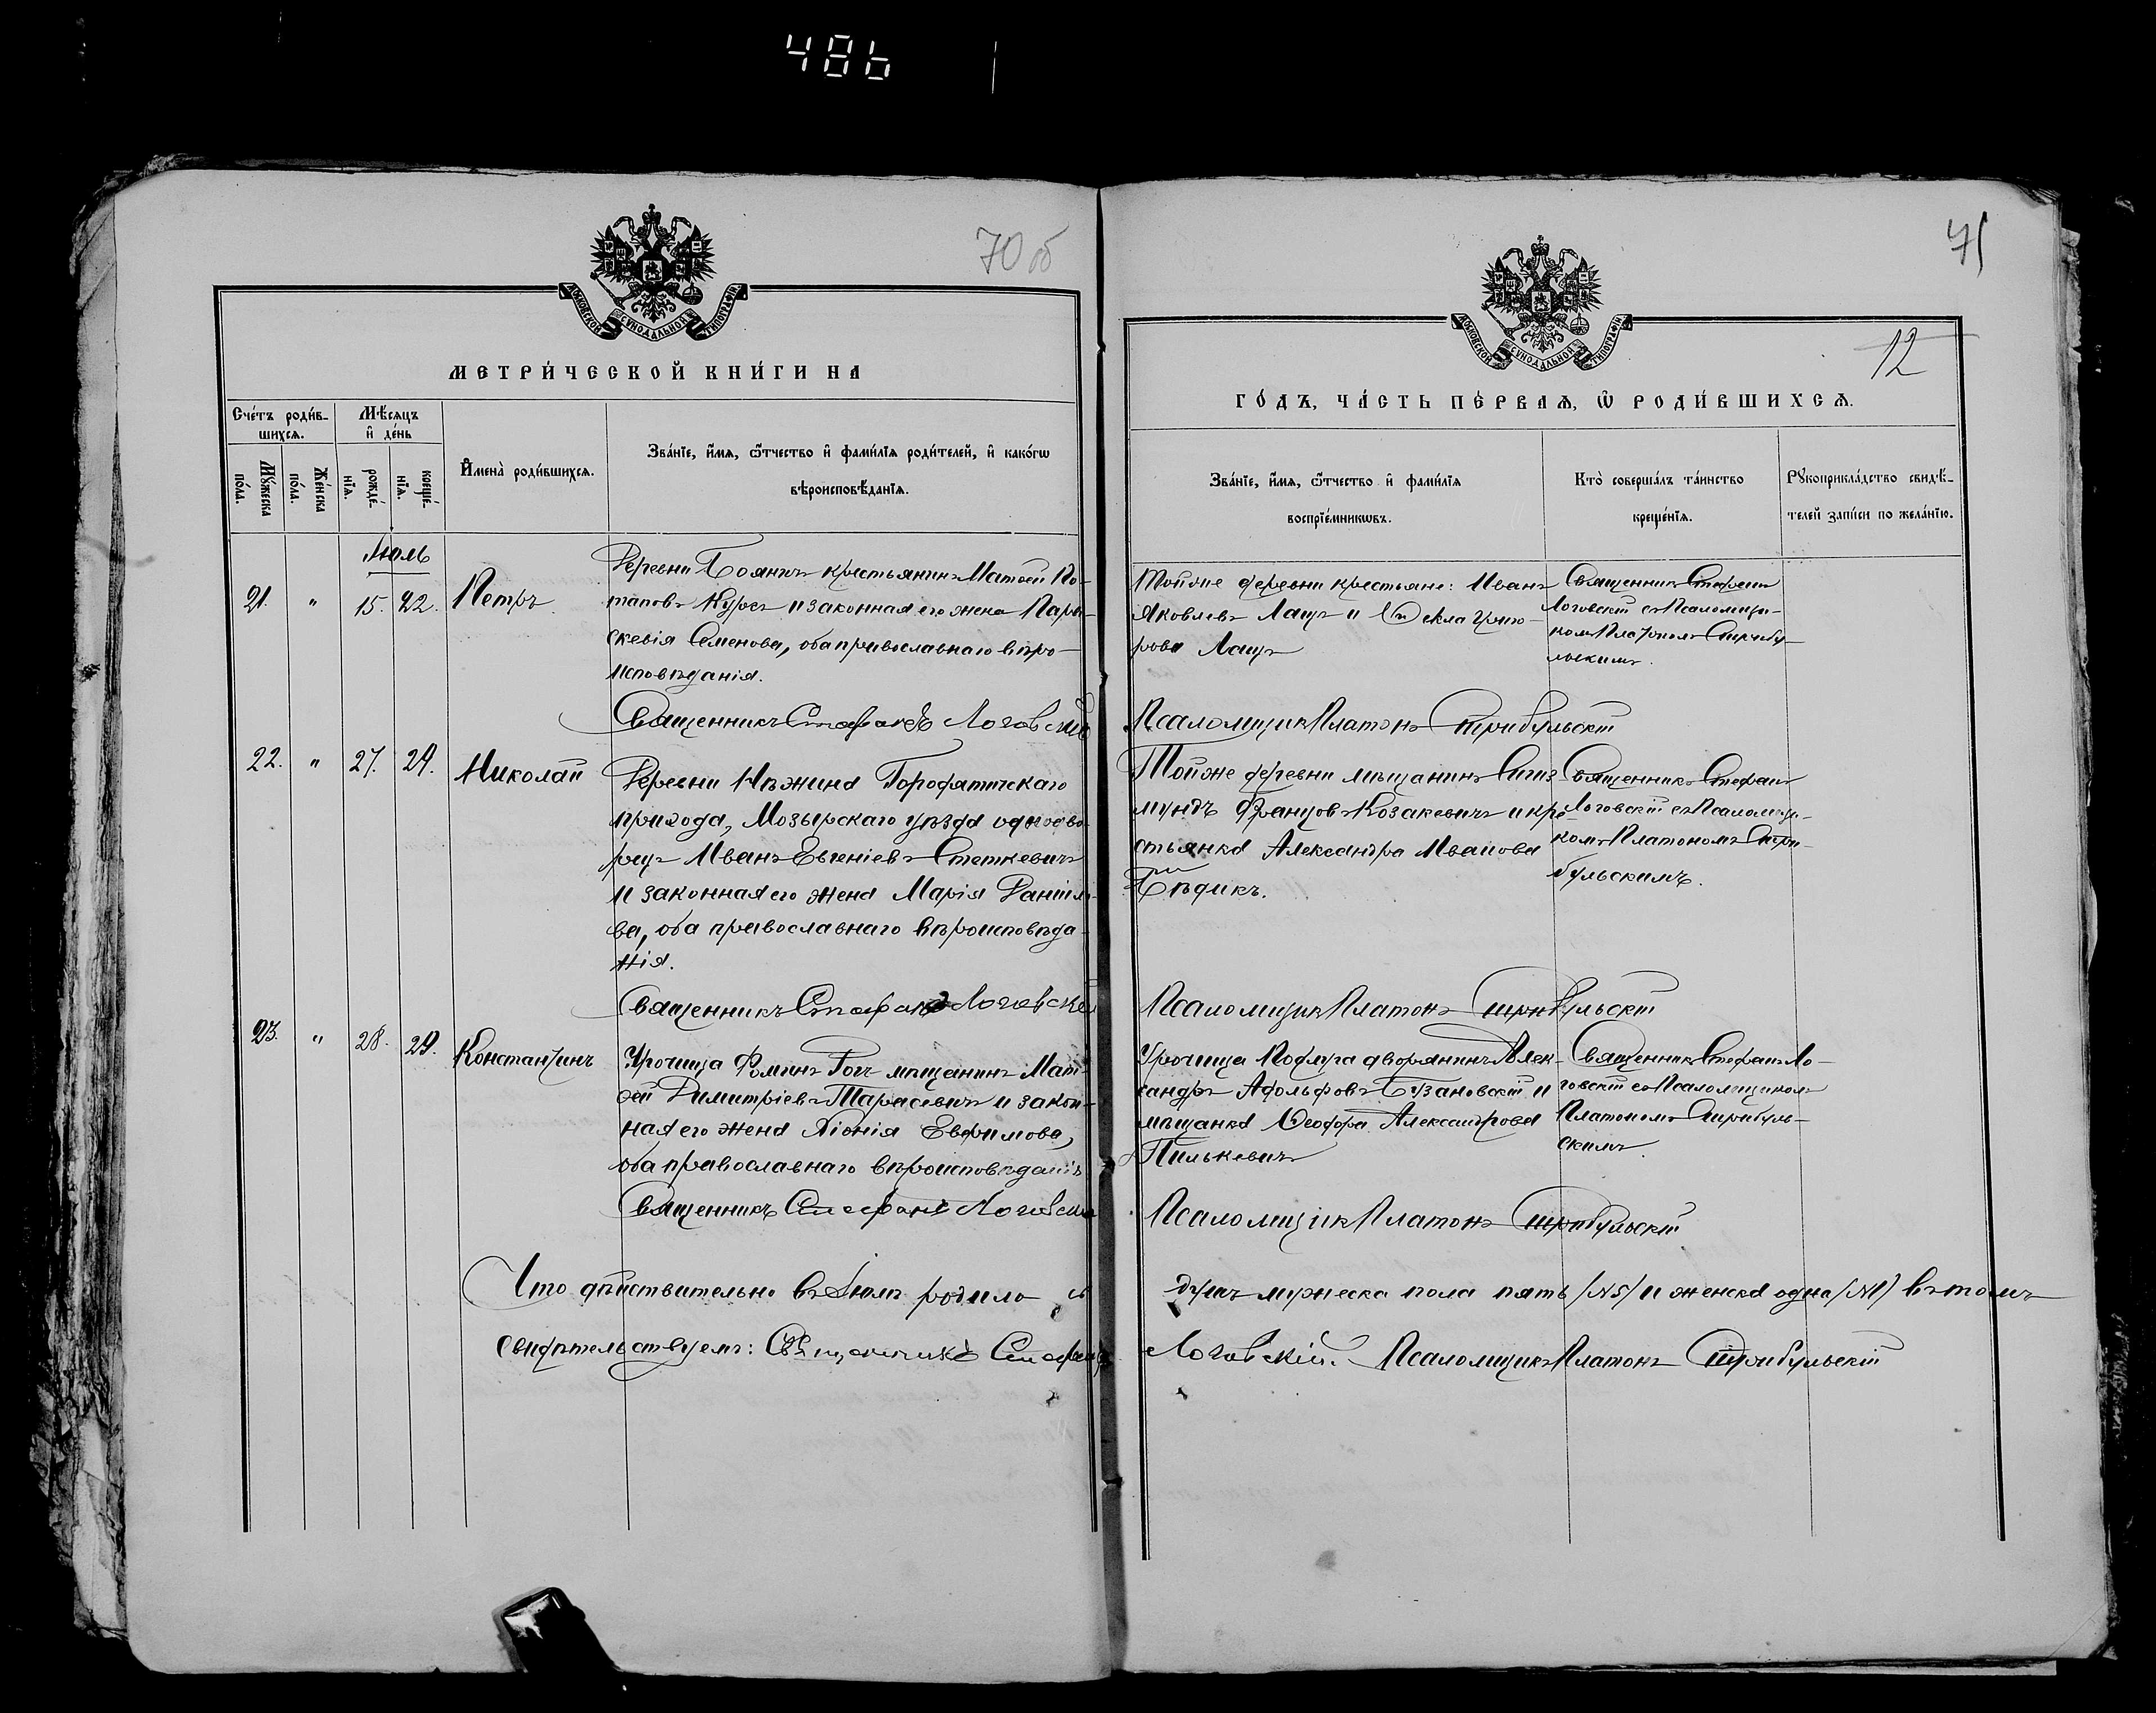 486
70 об
МОСКОВСКОЙ СѴНОДАЛЬНОЙ ТИПОГРАФІИ
МЕТРИ́ЧЕСКОЙ КНИ́ГИ НА
Сче́тъ роди́в-
шихсѧ.
Мѣ́сѧцъ
и҆ де́нь
Мꙋ́жеска
по́ла.
Же́нска
по́ла.
рожде́-
нїѧ.
креще́-
нїѧ.
И҆мена̀ роди́вшихсѧ.
Зва́нїе, и҆́мѧ, ѻ҆́тчество и҆ фами́лїѧ роди́телей, и҆ како́гѡ
вѣроисповѣ́данїѧ.
Іюль
21. " 15. 22. Петръ
Деревни Боянич крестьянинъ Матѳей По-
таповъ Курсъ и законная его жена Пара-
скевія Семенова, оба православнаго вѣро-
исповѣданія.
Священникъ Стефанъ Логовскій
22. " 27. 29. Николай
Деревни Нѣжина Городятичскаго
прихода, Мозырскаго уѣзда однодво-
рецъ Иванъ Евгеніевъ Стеткевичъ
и законная его жена Марія Даніило-
ва, оба православнаго вѣроисповѣда-
нія.
Священникъ Стефанъ Логовскій
23. " 28. 29. Константинъ
Урочища Фоминъ Рогъ мѣщанинъ Мат-
ѳей Димитріевъ Тарасевичъ и закон-
ная его жена Евфимова,
оба православнаго вѣроисповѣданія
Священникъ Стефанъ Логовскій
Что дѣйствительно въ Іюлѣ родило сь
свидѣтельствуемъ: Священникъ Стефанъ
71
12
МОСКОВСКОЙ СѴНОДАЛЬНОЙ ТИПОГРАФІИ
ГО́ДЪ, ЧА́СТЬ ПЕ́РВАѦ, Ѽ РОДИ́ВШИХСѦ.
Зва́нїе, и҆́мѧ, ѻ҆́тчество и҆ фами́лїѧ
воспрїе́мникѡвъ.
Кто̀ соверша́лъ та́инство
креще́нїѧ.
Рꙋкоприкла́дство свидѣ́-
телей за́писи по жела́нїю.
Той же деревни крестьяне: Иванъ
Яковлевъ Лацъ и Ѳекла Григо-
рова Лацъ
Священникъ Стефанъ
Логовскій съ Псаломщи-
комъ Платономъ Стрибу-
льскимъ.
Псаломщикъ Платонъ Стрибульскій
Той же деревни мѣщанинъ Сигиз-
мундъ Францовъ Козакевичъ и кре-
стьянка Александра Иванова
Бѣдикъ.
Священникъ Стефанъ
Логовскій съ Псаломщи-
комъ Платономъ Стри-
бульскимъ.
Псаломщикъ Платонъ Стрибульскій
Урочища дворянинъ Алек-
сандръ Адольфовъ и
мѣщанка Ѳеодора Александрова
Пилькевичъ
Священникъ Стефанъ Ло-
говскій съ Псаломщикомъ
Платономъ Стрибуль-
скимъ.
Псаломщикъ Платонъ Стрибульскій
душъ мужеска пола пять /№5/ и женска одна /№1/ въ томъ
Логовскій. Псаломщикъ Платонъ Стрибульскій